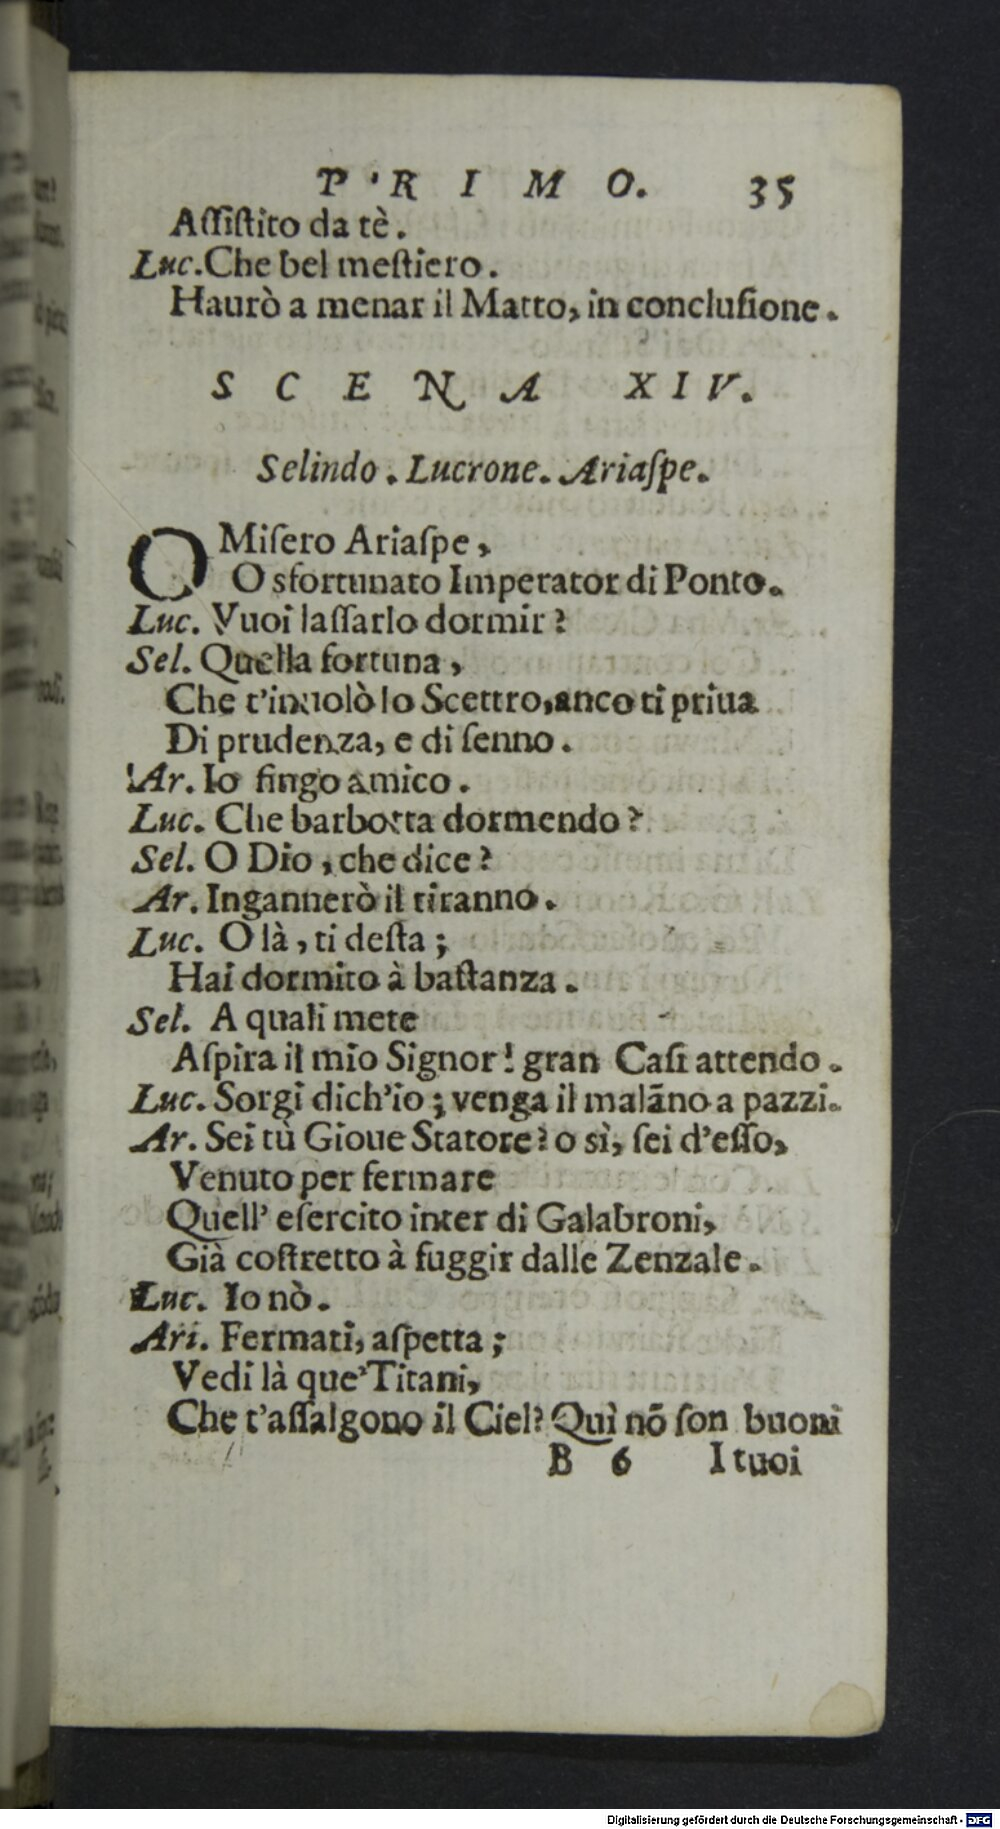 P R I M O. 35
Aſſiſtito da tè.
Luc. Che bel meſtiero.
Haurò a menar il Matto, in concluſione.
S C E N A XIV.
Selindo. Lucrone. Ariaſpe.
O Miſero Ariaſpe,
O sfortunato Imperator di Ponto.
Luc. Vuoi laſſarlo dormir?
Sel. Quella fortuna,
Che t'inuolò lo Scettro, anco ti priua
Di prudenza, e di ſenno.
Ar. Io fingo amico.
Luc. Che barbotta dormendo?
Sel. O Dio, che dice?
Ar. Ingannerò il tiranno.
Luc. O là, ti deſta;
Hai dormito à baſtanza.
Sel. A quali mete
Aſpira il mio Signor! gran Caſi attendo.
Luc. Sorgi dich'io; venga il malãno a pazzi.
Ar. Sei tù Gioue Statore? o sì, ſei d'eſſo,
Venuto per fermare
Quell' eſercito inter di Galabroni,
Già coſtretto à fuggir dalle Zenzale.
Luc. Io nò.
Ari. Fermati, aſpetta;
Vedi là que' Titani,
Che t'aſſalgono il Ciel? Quì nõ ſon buoni
B 6 I tuoi
Digitalisierung gefördert durch die Deutsche Forschungsgemeinschaft - DFG